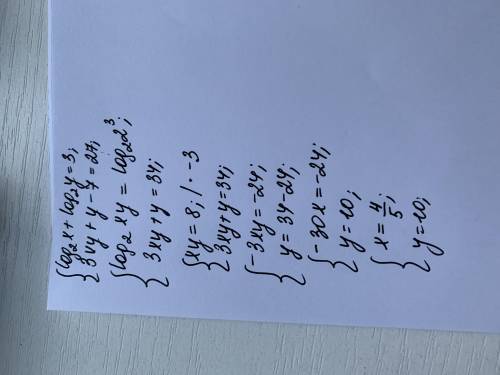 {log₂x + log₂y = 3;
3xy + y - 7 = 27;
{log₂ xy = log₂ 2³;
3xy + y = 34;
{xy = 8; / · -3
3xy + y = 34;
{-3xy = -24;
y = 34 - 24;
{-30x = -24;
y = 10;
{x = 4/5;
y = 10;